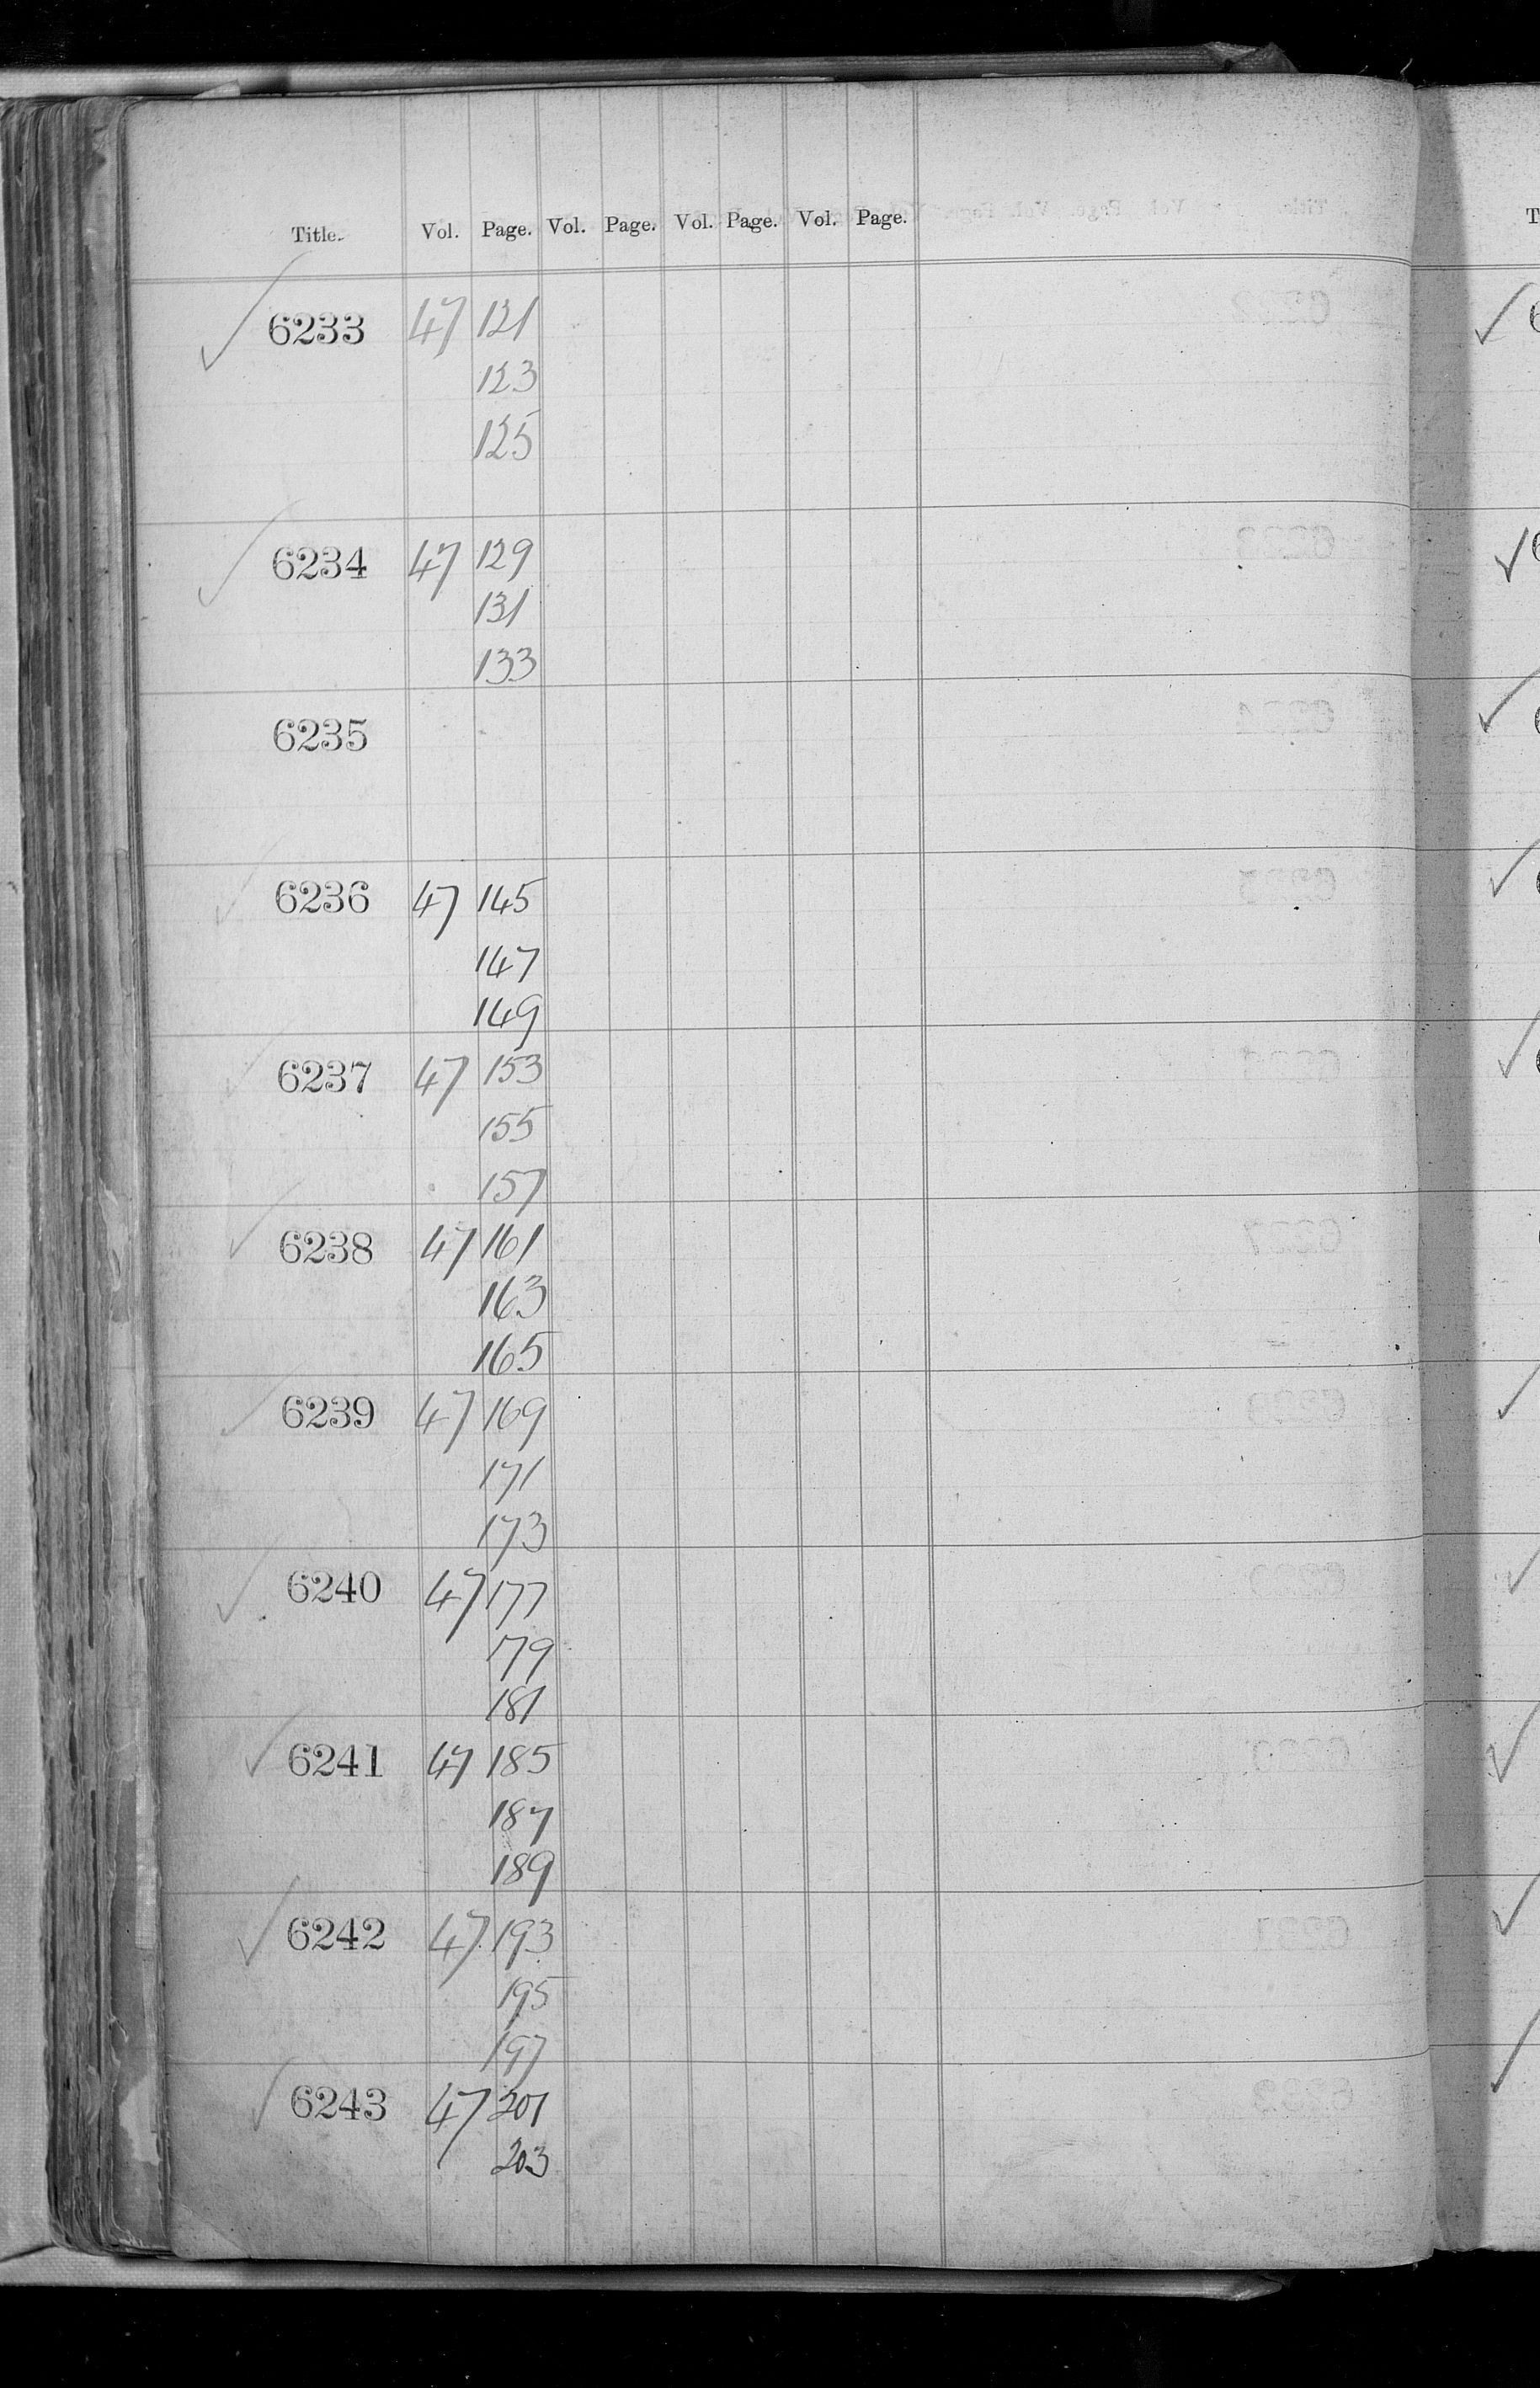 Title. Vol. Page. Vol. Page. Vol. Page. Vol. Page.
6233 47 121
123
125
6234 47 129
131
133
6235
6236 47 145
147
149
6237 47 153
155
157
6238 47 161
163
165
6239 47 169
171
173
6240 47 177
179
181
6241 47 185
187
189
6242 47 193
195
197
6243 47 201
203